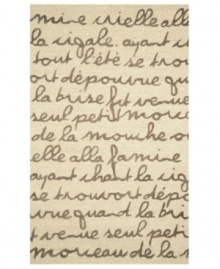 mine crielle alle
la cigale. ayant c
tout l'été se trou
ort dépourvue qu
la brise fut venue
seul petit morce
de la mouche ou
elle alla famine
ayant chant la cig
se trouvort dépo
vue quand la bri
t venue seul petit
morceau de la m